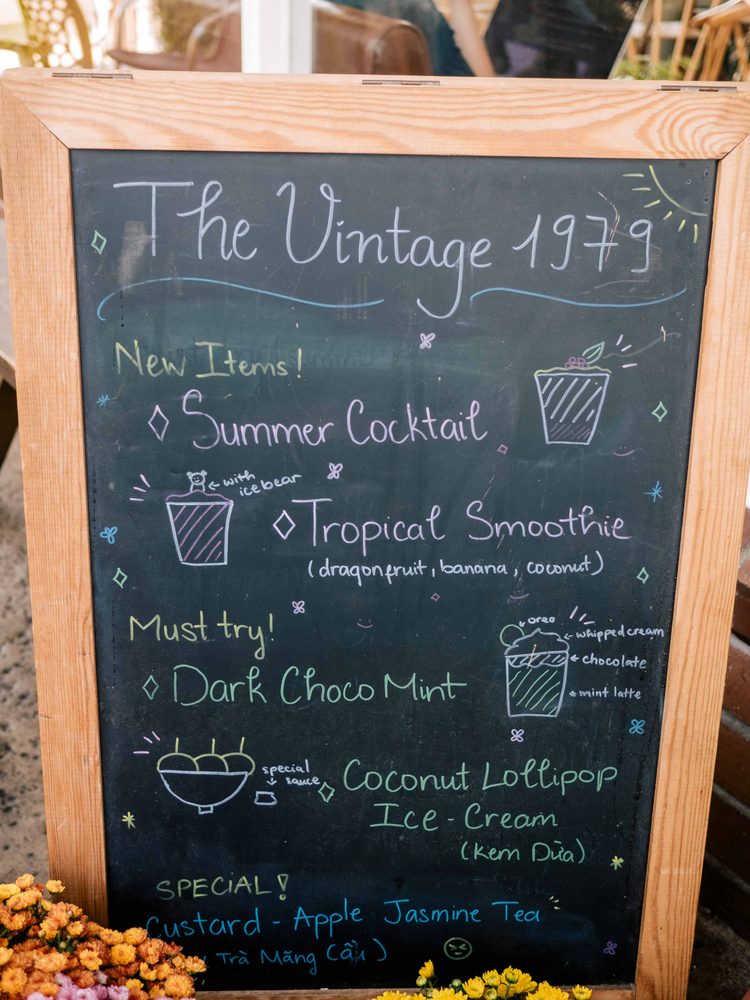 The Vintage 1979
New Items!
Summer Cocktail
←with
icebear
Tropical Smoothie
(dragonfruit, banana, coconut)
Must try!
oreo
←whipped cream
←chocolate
←mint latte
Dark Choco Mint
special
sauce
Coconut Lollipop
Ice-Cream
(Kem Dừa)
SPECIAL!
Custard-Apple Jasmine Tea
(Trà Mãng Cầu)